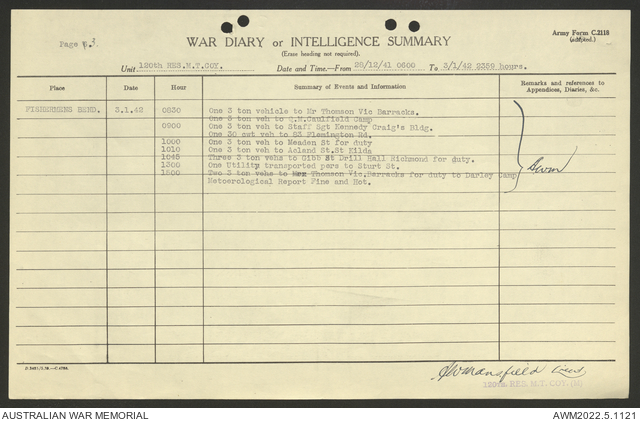 Page 3
WAR DIARY or INTELLIGENCE SUMMARY
Army Form C.2118
(adapted.)
(Erase heading not required).
Unit 120th RES.M.T.COY. Date and Time.—From 28/12/41 0600 To 3/1/42 2359 hours.
Place Date Hour Summary of Events and Information Remarks and references to Appendices, Diaries, &c.
FISHERMENS BEND. 3.1.42 0830 One 3 ton vehicle to Mr Thomson Vic Barracks.
One 3 ton veh to Q.M.Caulfield Camp
0900 One 3 ton veh to Staff Sgt Kennedy Craig's Bldg.
One 30 cwt veh to 83 Flemington Rd.
1000 One 3 ton veh to Neaden St for duty
1010 One 3 ton veh to Acland St.St Kilda
1045 Three 3 ton vehs to Gibb St Drill Hall Richmond for duty.
1300 One Utility transported pers to Sturt St.
1500 Two 3 ton vehs to Mr Thomson Vic.Barracks for duty to Darley Camp
Meteorological Report Fine and Hot.
Mansfield Lieut
120th RES. M.T. COY.
AUSTRALIAN WAR MEMORIAL
AWM2022.5.1121